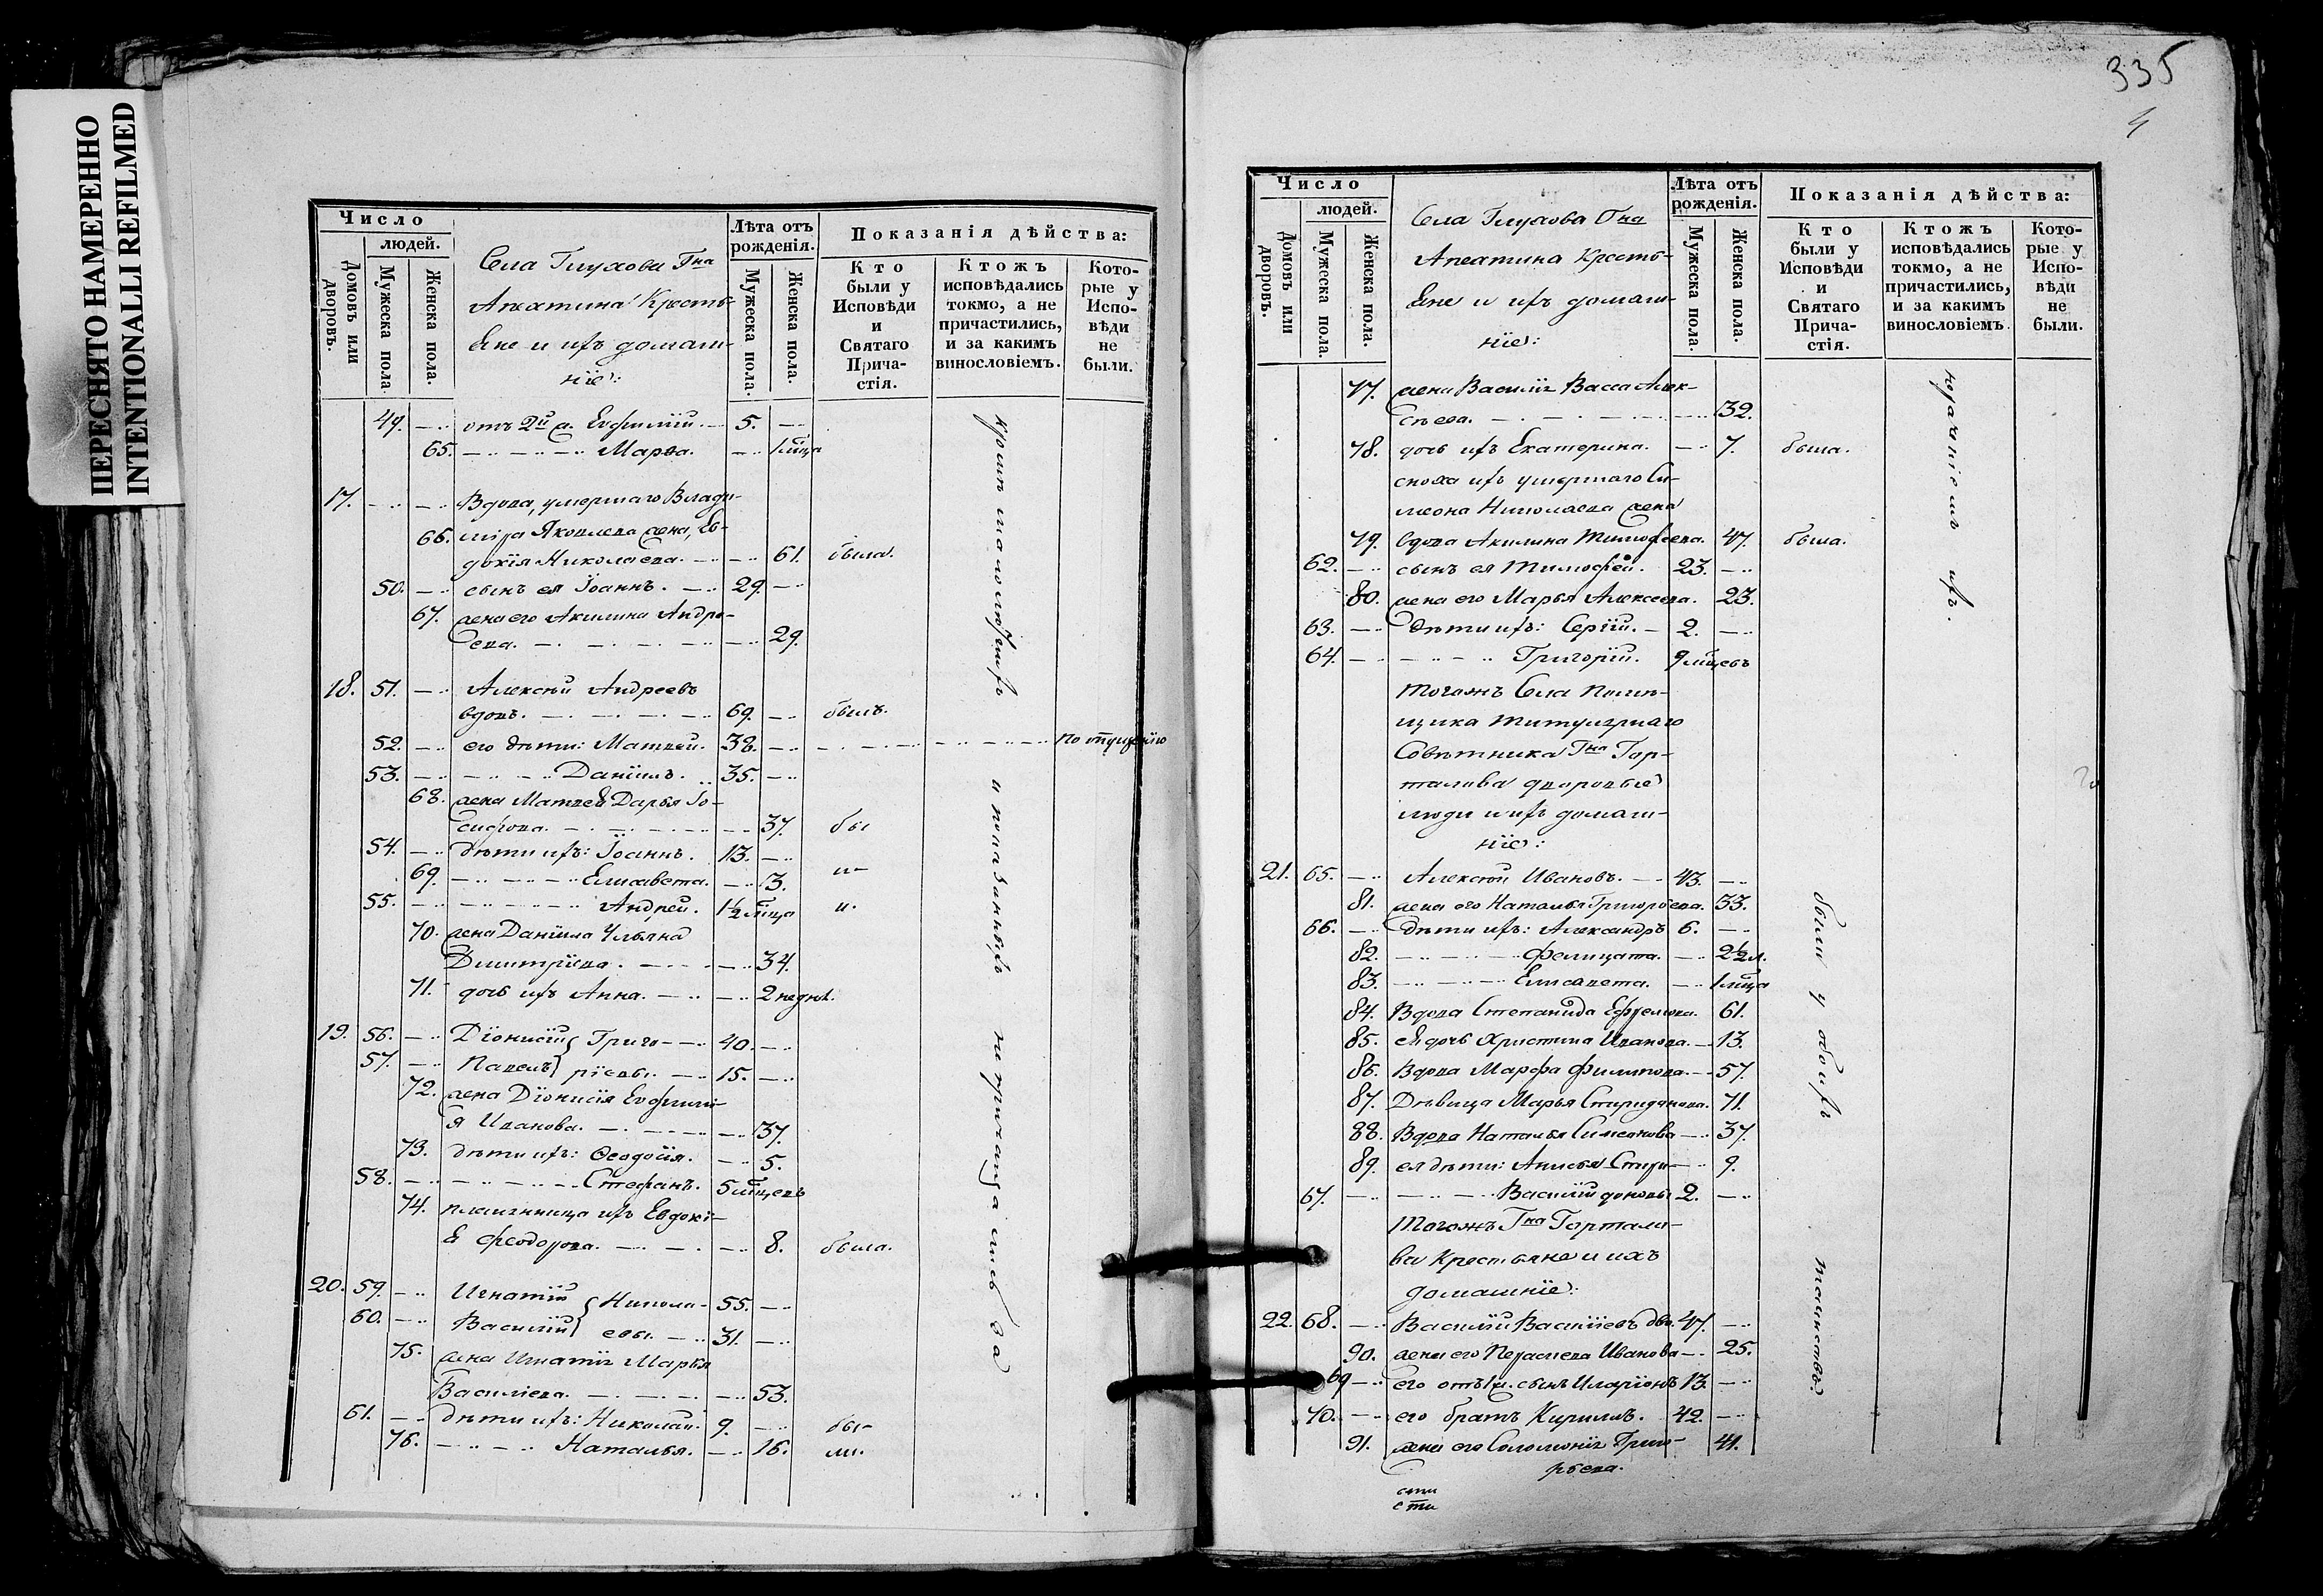 ПЕРЕСНЯТО НАМЕРЕННО
INTENTIONALLI REFILMED
Число
людей.
Домовъ или дворовъ.
Мужеска пола
Женска пола.
Села Глухова Гна
Апехтина Кресть-
яне и ихъ домаш-
ніе:
Лѣта отъ рожденія.
Мужеска пола.
Женска пола.
Показанія дѣйства:
Кто были у Исповѣди и Святаго Прича-стія.
Ктожъ исповѣдались токмо, а не причастились, и за какимъ винословіемъ.
Кото-рые у Испо-вѣди не были.
49. отъ 2й ж. Евфимій 5.
65. Марѳа. 1 мца
17. Вдова, умершаго Влади-
66. міра Яковлева жена, Ев-
докія Николаева. 61. была.
50. сынъ ея Іоаннъ. 29.
67. жена его Акилина Андре-
ева. 29.
18. 51. Алексѣй Андреевъ
вдовъ. 69. былъ.
52. его дѣти: Матвей. 38. по отлученію
53. Даніилъ. 35.
68. жена Матвея Дарья Іо-
сифова. 37. бы
54. дѣти ихъ: Іоаннъ. 13.
69. Елисавета. 3.
55. Андрей. 1½ мца
70. жена Даніила Ульяна
Димитріева. 34.
71. дочь ихъ Анна. 2 недѣл.
19. 56. Діонисій } Григо- 40.
57. Павелъ } ріевы. 15.
72. жена Діонисія Евфими-
я Иванова. 37.
73. дѣти ихъ: Ѳеодосія. 5.
58. Стефанъ. 5 мцевъ
74. племянница ихъ Евдокі-
я Феодорова. 8. была.
20. 59. Игнатій } Никола- 55.
60. Василій } евы. 31.
75. жена Игнатія Марья
Василіева. 53.
61. дѣти ихъ: Николай. 9. бы-
76. Наталья. 16. ли.
кромѣ малолѣтнихъ и показанныхъ не причащались за
335
4
Число
людей.
Домовъ или дворовъ.
Мужеска пола.
Женска пола.
Села Глухова Гна
Апехтина Кресть-
яне и ихъ домаш-
ніе:
Лѣта отъ рожденія.
Мужеска пола.
Женска пола.
Показанія дѣйства:
Кто были у Исповѣди и Святаго Прича-стія.
Ктожъ исповѣдались токмо, а не причастились, и за какимъ винословіемъ.
Кото-рые у Испо-вѣди не были.
77. жена Василія Васса Алек-
сѣева. 32.
78. дочь ихъ Екатерина. 7. была.
сноха ихъ умершаго Си-
меона Николаева жена
79. вдова Акилина Тимофеева. 47. была.
62. сынъ ея Тимофей. 23.
80. жена его Марья Алексеева. 23.
63. дѣти ихъ: Сергій. 2.
64. Григорій. 9 мцевъ
нераченіемъ ихъ.
Тогожъ Села Помѣ-
щика Титулярнаго
Совѣтника Гна Гор-
талова дворовые
люди и ихъ домаш-
ніе:
21. 65. Алексѣй Ивановъ. 43.
81. жена его Наталья Григорьева. 33.
66. дѣти ихъ: Александръ 6.
82. Фелицата. 2½ л.
83. Елисавета. 1 мца
84. Вдова Степанида Ефремова. 61.
85. ея дочь Христина Иванова. 13.
86. Вдова Марфа Филипова. 57.
87. Дѣвица Марья Спиридонова. 71.
88. Вдова Наталья Симеонова 37.
89. ея дѣти: Анисья Спири- 9.
67. Василій доновы 2.
Тогожъ Гна Гортало-
ва Крестьяне и ихъ
домашніе:
22. 68. Василій Василіевъ 47.
90. жена его Параскева Иванова 25.
69 его отъ 1й ж. сынъ Иларіонъ 13.
70. его братъ Кирилъ. 42.
91. жена его Соломонія Григо- 41.
рьева.
были у обоихъ таинствъ.